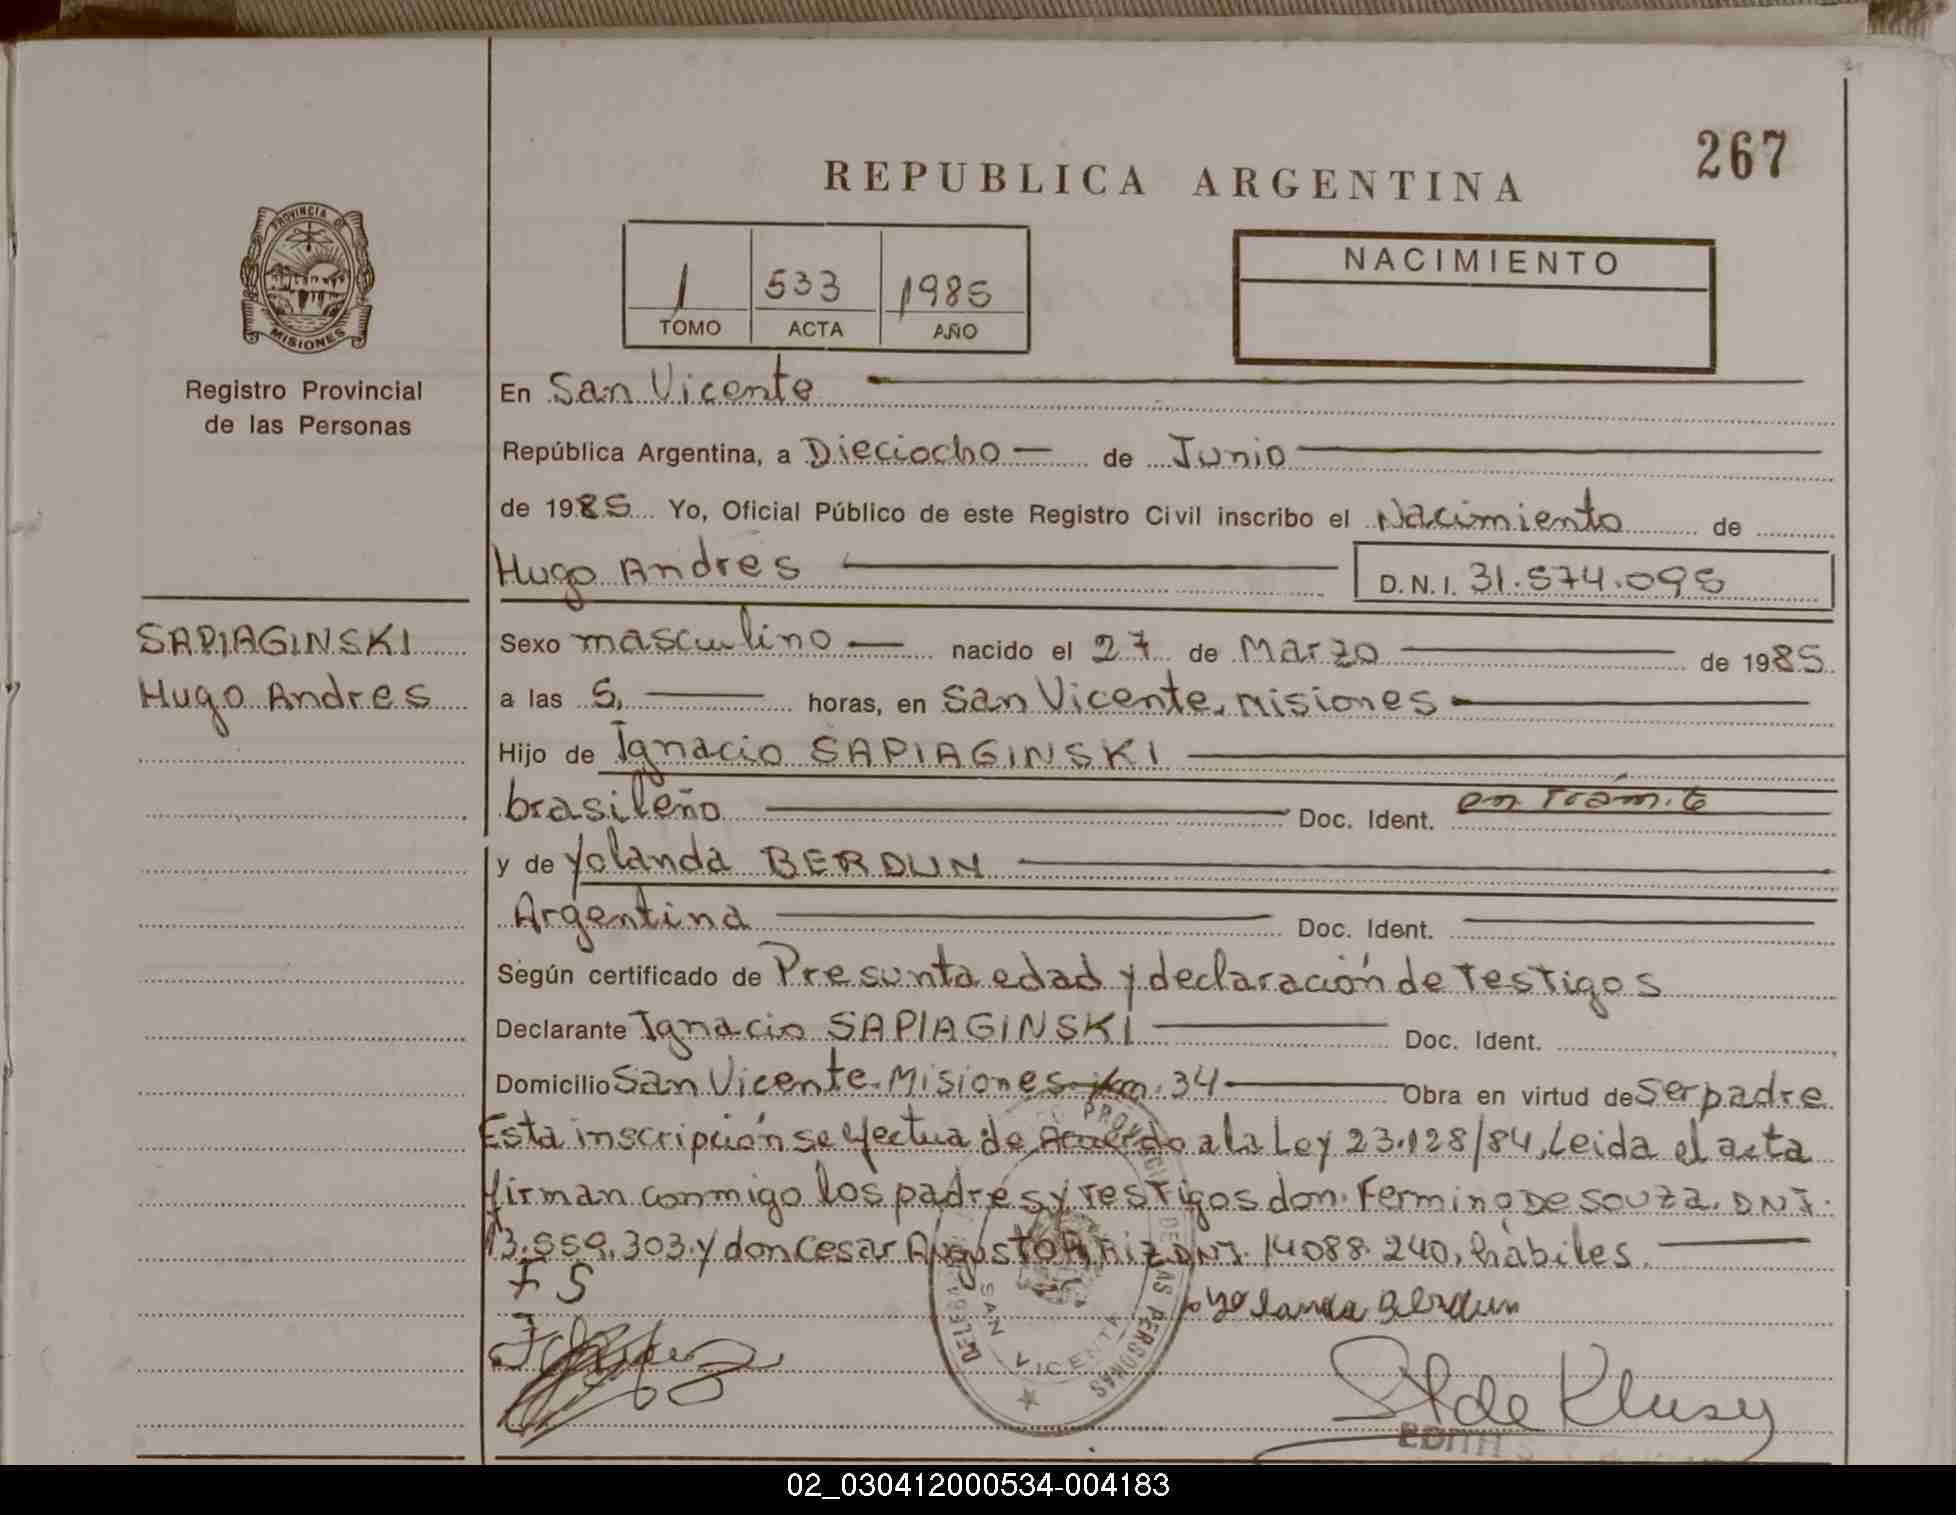 267
REPUBLICA ARGENTINA
PROVINCIA DE
MISIONES
1 533 1985
TOMO ACTA AÑO
NACIMIENTO
Registro Provincial
de las Personas
En San Vicente
República Argentina, a Dieciocho de Junio
de 1985 Yo, Oficial Público de este Registro Civil inscribo el Nacimiento de
Hugo Andres D.N.I. 31.574.095
SAPIAGINSKI
Hugo Andres
Sexo masculino nacido el 27 de Marzo de 1985
a las 5, horas, en San Vicente. Misiones
Hijo de Ignacio SAPIAGINSKI
brasileño Doc. Ident. en Trámite
y de Yolanda BERDUN
Argentina Doc. Ident.
Según certificado de Presunta edad y declaración de Testigos
Declarante Ignacio SAPIAGINSKI Doc. Ident.
Domicilio San Vicente. Misiones km. 34 Obra en virtud de ser padre
Esta inscripción se efectua de Acuerdo a la Ley 23.128/84, Leida el acta
firman conmigo los padres y Testigos don. Fermino De Souza. DNI.
13.559.303. y don Cesar Augusto DNI. 14088.240, hábiles.
F S
Yolanda Berdun
PROVINCIAL DE LAS PERSONAS
SAN VICENTE
02_030412000534-004183